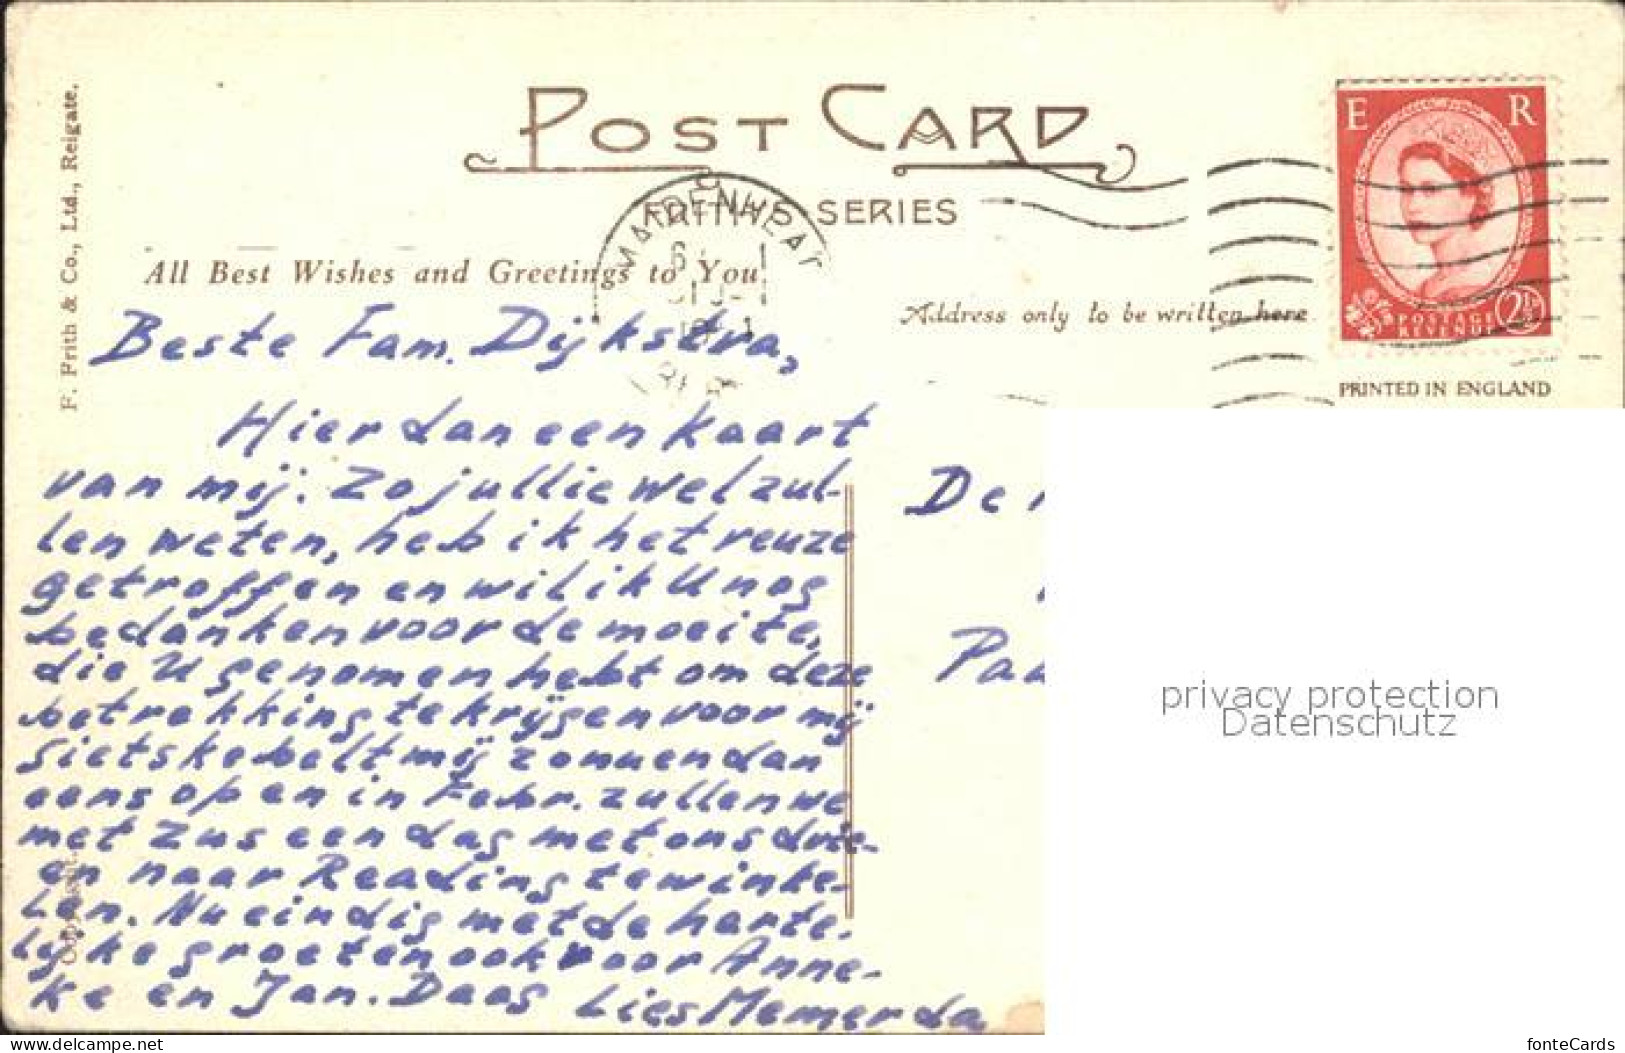 POST CARD
FRITH'S SERIES
All Best Wishes and Greetings to You
Address only to be written here
F. Frith & Co., Ltd., Reigate.
MAIDENHEAD
E R
POSTAGE
REVENUE
2½D
PRINTED IN ENGLAND
Beste Fam. Dijkstra,
Hier dan een kaart
van mij. Zo jullie wel zul-
len weten, heb ik het reuze
getroffen en wil ik U nog
bedanken voor de moeite,
die U genomen hebt om deze
betrekking te krijgen voor mij
Sietske belt mij zo nu en dan
eens op en in Febr. zullen we
met Zus een dag met ons drie-
en naar Reading te winke-
len. Nu eindig met de harte-
lijke groeten ook voor Anne-
ke en Jan. Daag
Lies Memerda
De
Pau
privacy protection
Datenschutz
https://www.delcampe.net
fonteCards